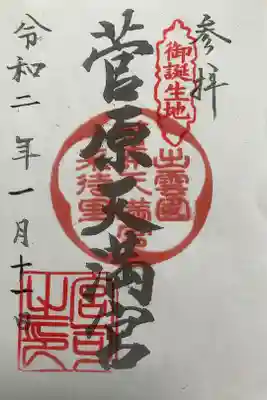 参拝
御誕生地
菅原天満宮
出雲國
菅原天満宮
来待里
宮司之印
令和二年一月十一日